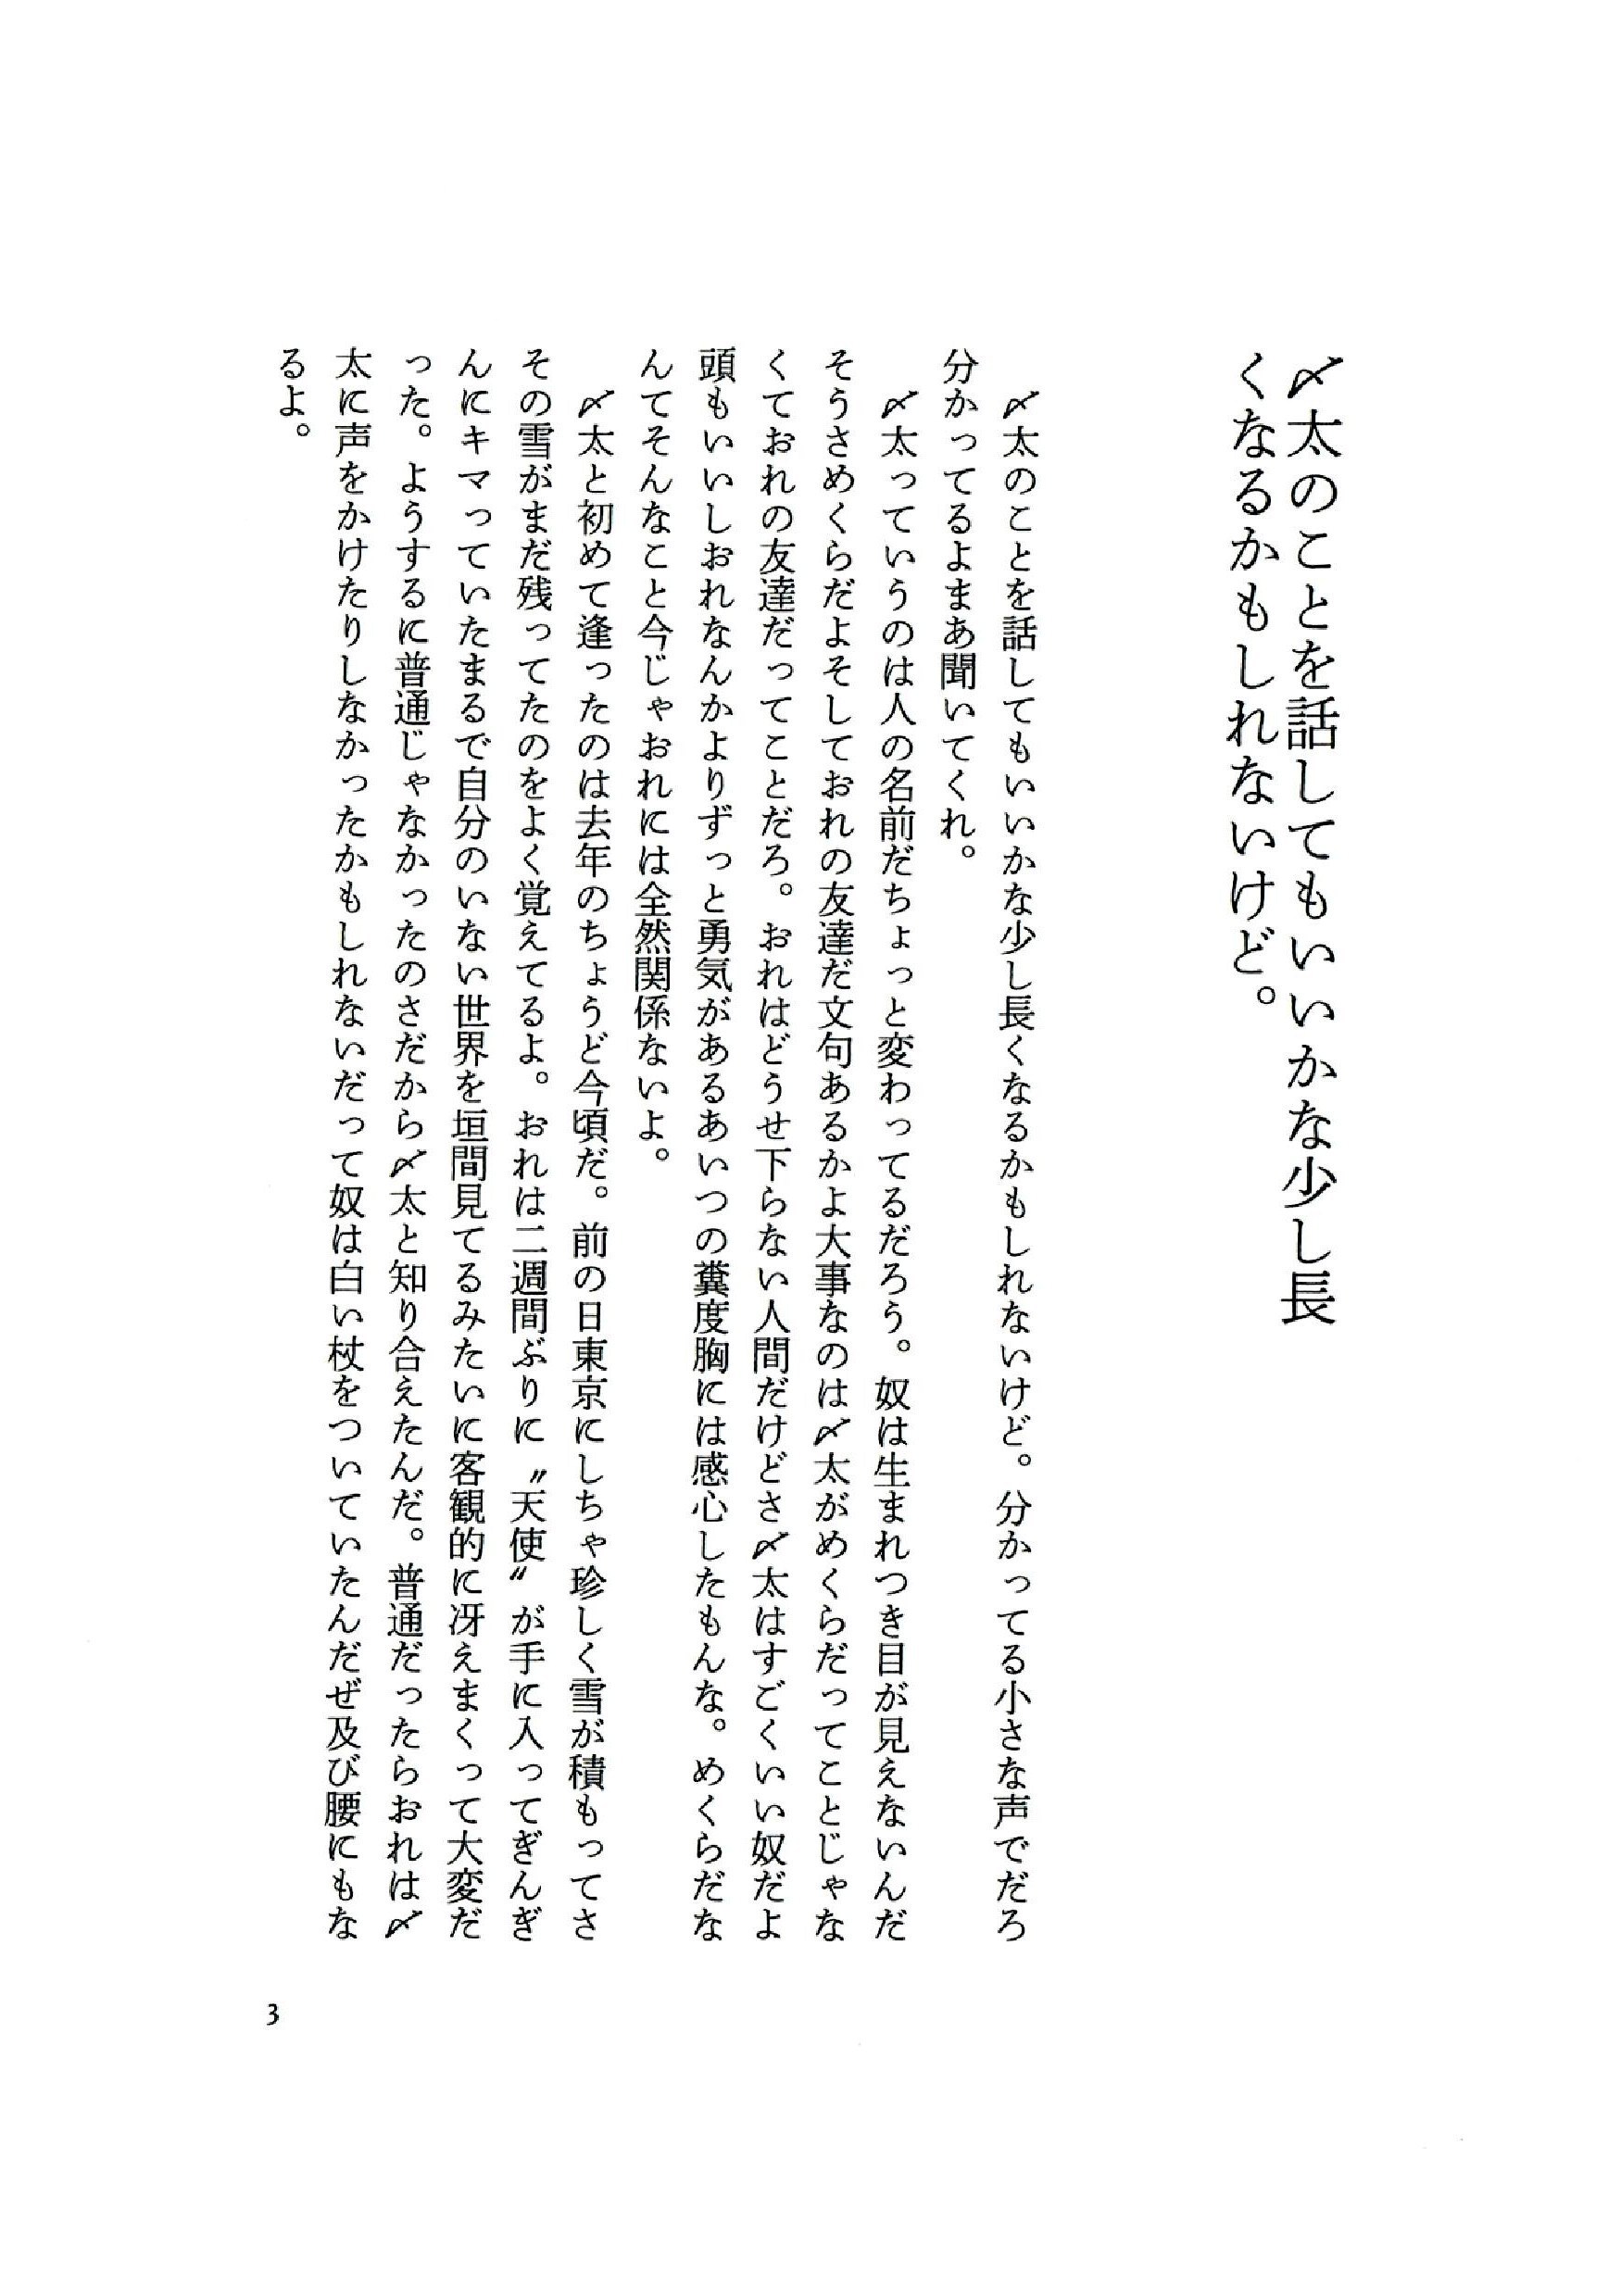 〆太のことを話してもいいかな少し長
くなるかもしれないけど。
〆太のことを話してもいいかな少し長くなるかもしれないけど。分かってる小さな声でだろ
分かってるよまあ聞いてくれ。
〆太っていうのは人の名前だちょっと変わってるだろう。奴は生まれつき目が見えないんだ
そうさめくらだよそしておれの友達だ文句あるかよ大事なのは〆太がめくらだってことじゃな
くておれの友達だってことだろ。おれはどうせ下らない人間だけどさ〆太はすごくいい奴だよ
頭もいいしおれなんかよりずっと勇気があるあいつの糞度胸には感心したもんな。めくらだな
んてそんなこと今じゃおれには全然関係ないよ。
〆太と初めて逢ったのは去年のちょうど今頃だ。前の日東京にしちゃ珍しく雪が積もってさ
その雪がまだ残ってたのをよく覚えてるよ。おれは二週間ぶりに〝天使〟が手に入ってぎんぎ
んにキマっていたまるで自分のいない世界を垣間見てるみたいに客観的に冴えまくって大変だ
った。ようするに普通じゃなかったのさだから〆太と知り合えたんだ。普通だったらおれは〆
太に声をかけたりしなかったかもしれないだって奴は白い杖をついていたんだぜ及び腰にもな
るよ。
3